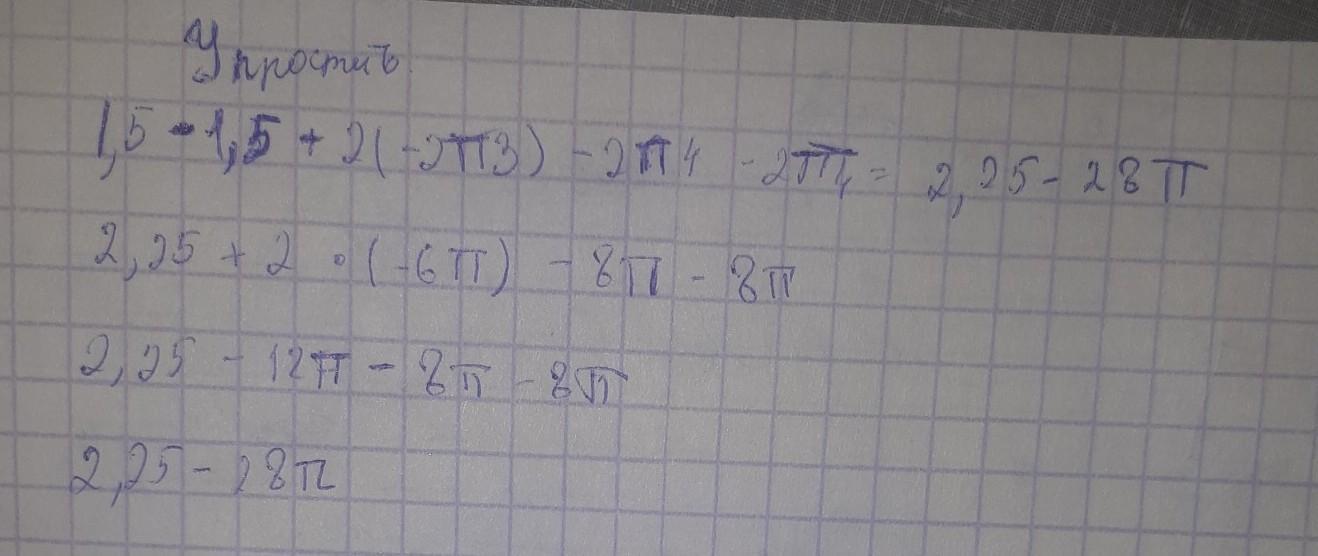 Упростить
1,5 - 1,5 + 2(-2π3) - 2π4 - 2π4 = 2,25 - 28π
2,25 + 2 · (-6π) - 8π - 8π
2,25 - 12π - 8π - 8π
2,25 - 28π